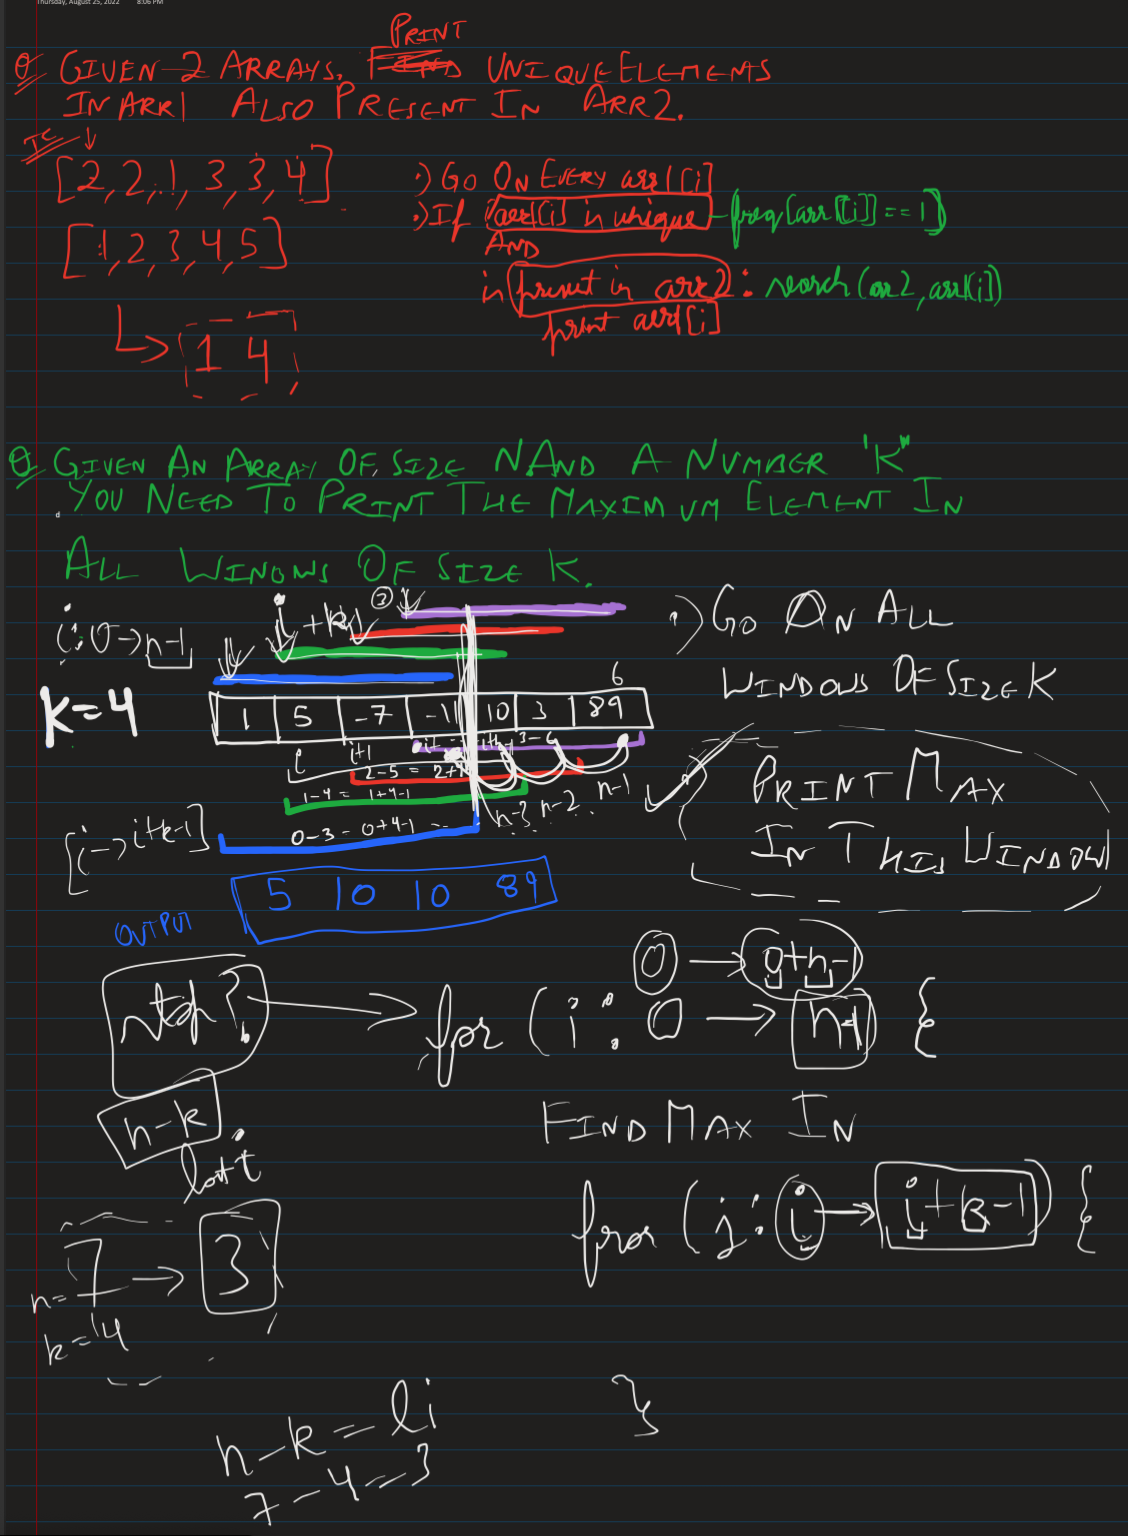 Thursday, August 25, 2022 8:06 PM
PRINT
Q GIVEN 2 ARRAYS, FIND UNIQUE ELEMENTS
IN ARR1 ALSO PRESENT IN ARR2.
TC
[2, 2, 1, 3, 3, 4]
[1, 2, 3, 4, 5]
1 4
·) GO ON EVERY arr1[i]
·) If arr1[i] is unique - freq[arr[i]] == 1
AND
is present in arr2 : search(arr2, arr1[i])
print arr1[i]
Q GIVEN AN ARRAY OF SIZE N AND A NUMBER "K"
YOU NEED TO PRINT THE MAXIMUM ELEMENT IN
ALL WINOWS OF SIZE K.
i: 0 → n-1
i + k
3
K = 4
6
1 5 -7 -11 10 3 89
i i+1
3-6
2-5 = 2+4
1-4 = 1+4-1
0-3 = 0+4-1 =
n-3 n-2 n-1
[i → i+k-1]
OUTPUT
5 10 10 89
·) GO ON ALL
WINDOWS OF SIZE K
PRINT MAX
IN THIS WINDOW
0 → 0+n-1
stop? → for (i : 0 → n-1) {
n-k
last
FIND MAX IN
for (j : i → i+k-1) {
n = 7 → 3
k = 4
}
n - k = li
7 - 4 = 3